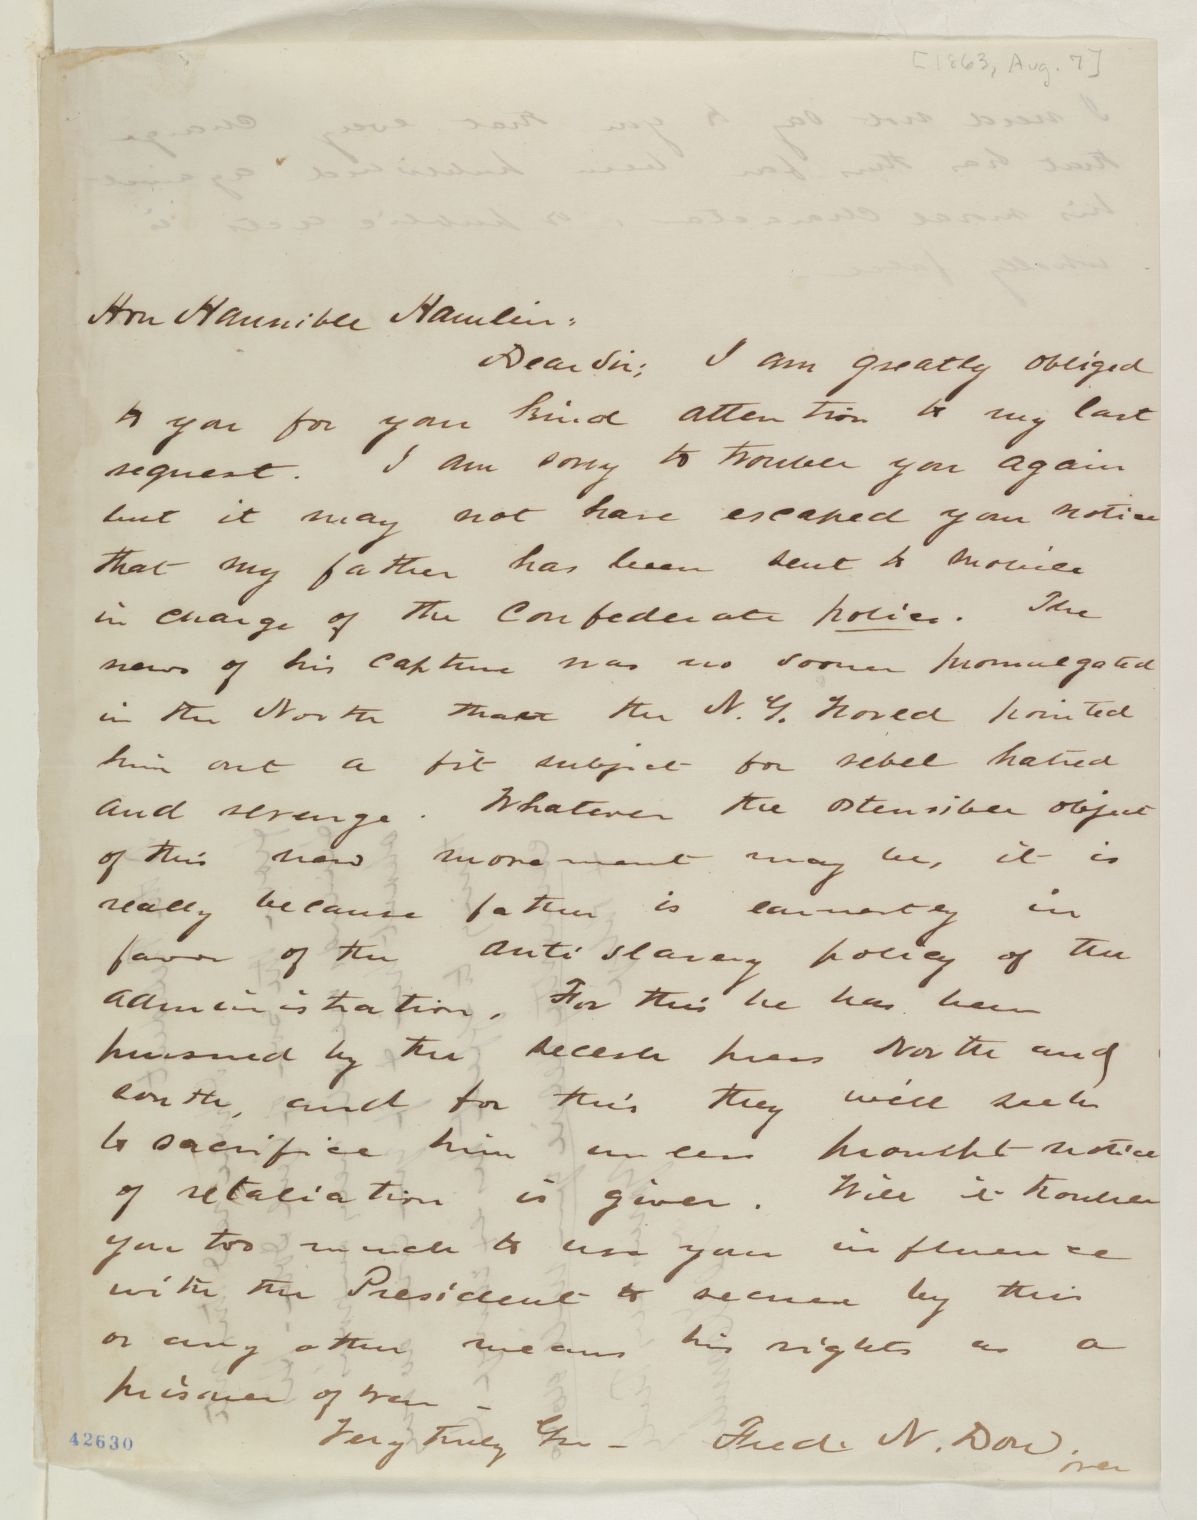 [1863, Aug. 7]
Hon Hannible Hamlin:
Dear Sir; I am greatly obliged
to you for your kind attention to my last
request. I am sorry to trouble you again
but it may not have escaped your notice
that my father has been sent to Mobile
in charge of the Confederate police. The
news of his capture was no sooner promulgated
in the North than the N. Y. World pointed
him out a fit subject for rebel hatred
and revenge. Whatever the ostensible object
of this new movement may be, it is
really because father is earnestly in
favor of the anti slavery policy of the
administration. For this he has been
pursued by the secesh press North and
South, and for this they will seek
to sacrifice him unless prompt notice
of retaliation is given. Will it trouble
you too much to use your influence
with the President to secure by this
or any other means his rights as a
prisoner of war -
Very truly Yrs - Fred. N. Dow.
over
42630